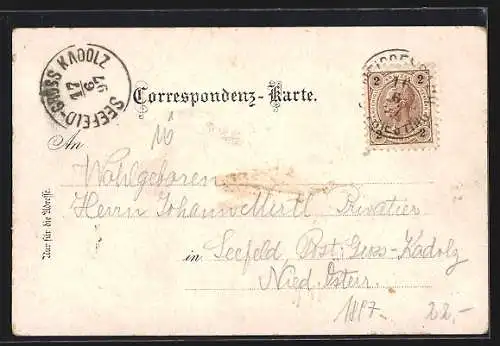 SEEFELD-GROSS KADOLZ
17
6
97
2 2
2 2
Correspondenz-Karte.
An
Wohlgeboren
Herrn Johann Mistl Privatier
in Seefeld, Post: Gross-Kadolz
Nied. Österr.
Nur für die Adresse.
1897- 22.-